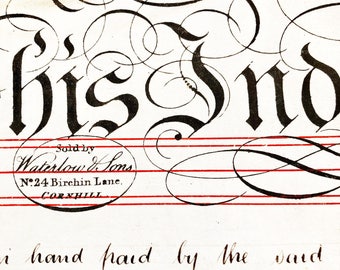 his Ind
Sold by
Waterlow & Sons
No. 24 Birchin Lane.
CORNHILL
hand paid by the said